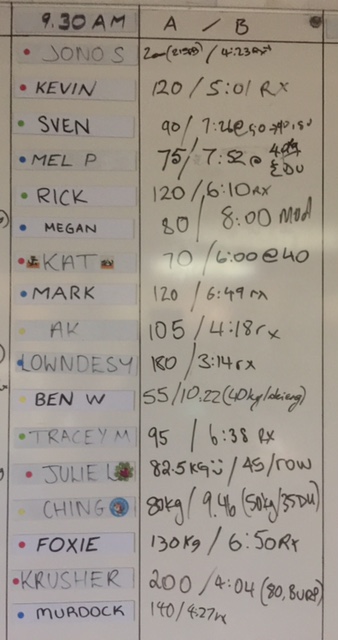 9.30 AM A / B
JONO S / 4:23
KEVIN 120 / 5:01 RX
SVEN 90 /
MEL P 75 / 7:52 @
RICK 120 / 6:10 RX
MEGAN 80 / 8:00 Mod
KAT 70 / 6:00 @ 40
MARK 120 / 6:49 rx
AK 105 / 4:18 rx
LOWNDESY 180 / 3:14 rx
BEN W 55 / 10:22 (40kg/
TRACEY M 95 / 6:38 RX
JULIE L 82.5KG / 45 / row
CHING 80kg / 9.46 (50kg/35DU)
FOXIE 130kg / 6:50 RX
KRUSHER 200 / 4:04 (80, BURP)
MURDOCK 140 / 4:27 rx